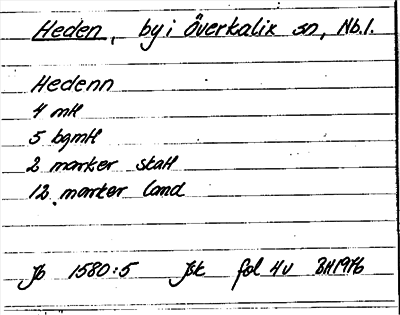 Heden, by i Överkalix sn, Nb.l.
Hedenn
4 mtl
5 bgmtl
2 marker skatt
12 marker land
Jb 1580:5 Jsk fol 4v BH1976